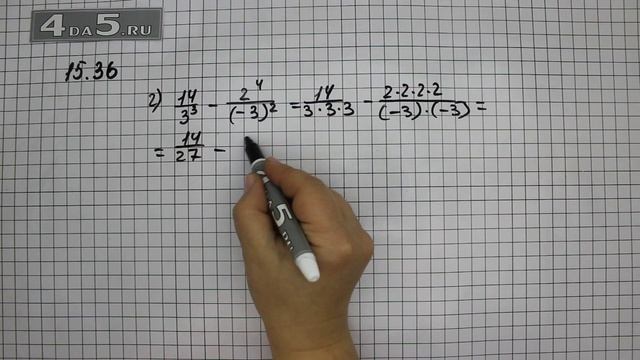 4DA5.RU
15.36
г) 14/3³ − 2⁴/(−3)² = 14/3·3·3 − 2·2·2·2/(−3)·(−3) =
= 14/27 −